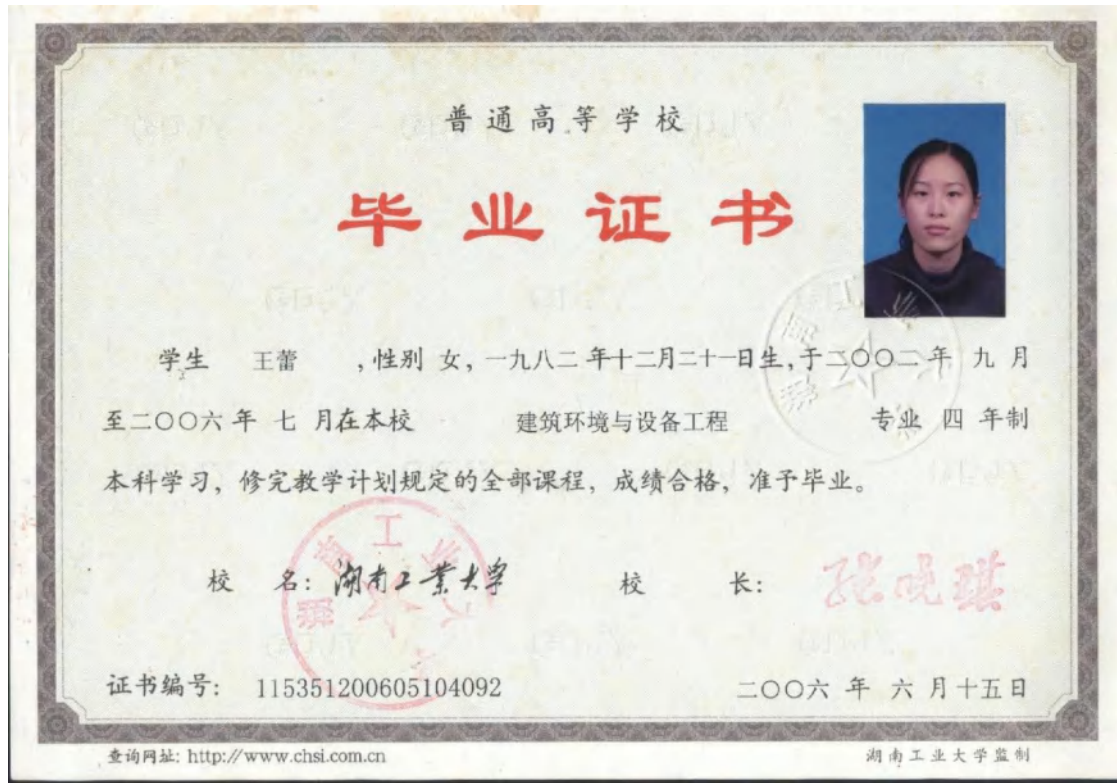 普通高等学校
毕业证书
学生 王蕾 ，性别 女，一九八二 年十二月二十一日生，于二〇〇二 年 九 月
至二〇〇六 年 七 月在本校 建筑环境与设备工程 专业 四 年制
本科学习，修完教学计划规定的全部课程，成绩合格，准予毕业。
校 名：湖南工業大学 校 长：张晓琪
证书编号： 115351200605104092 二〇〇六 年 六 月十五日
查询网址: http://www.chsi.com.cn 湖南工业大学监制